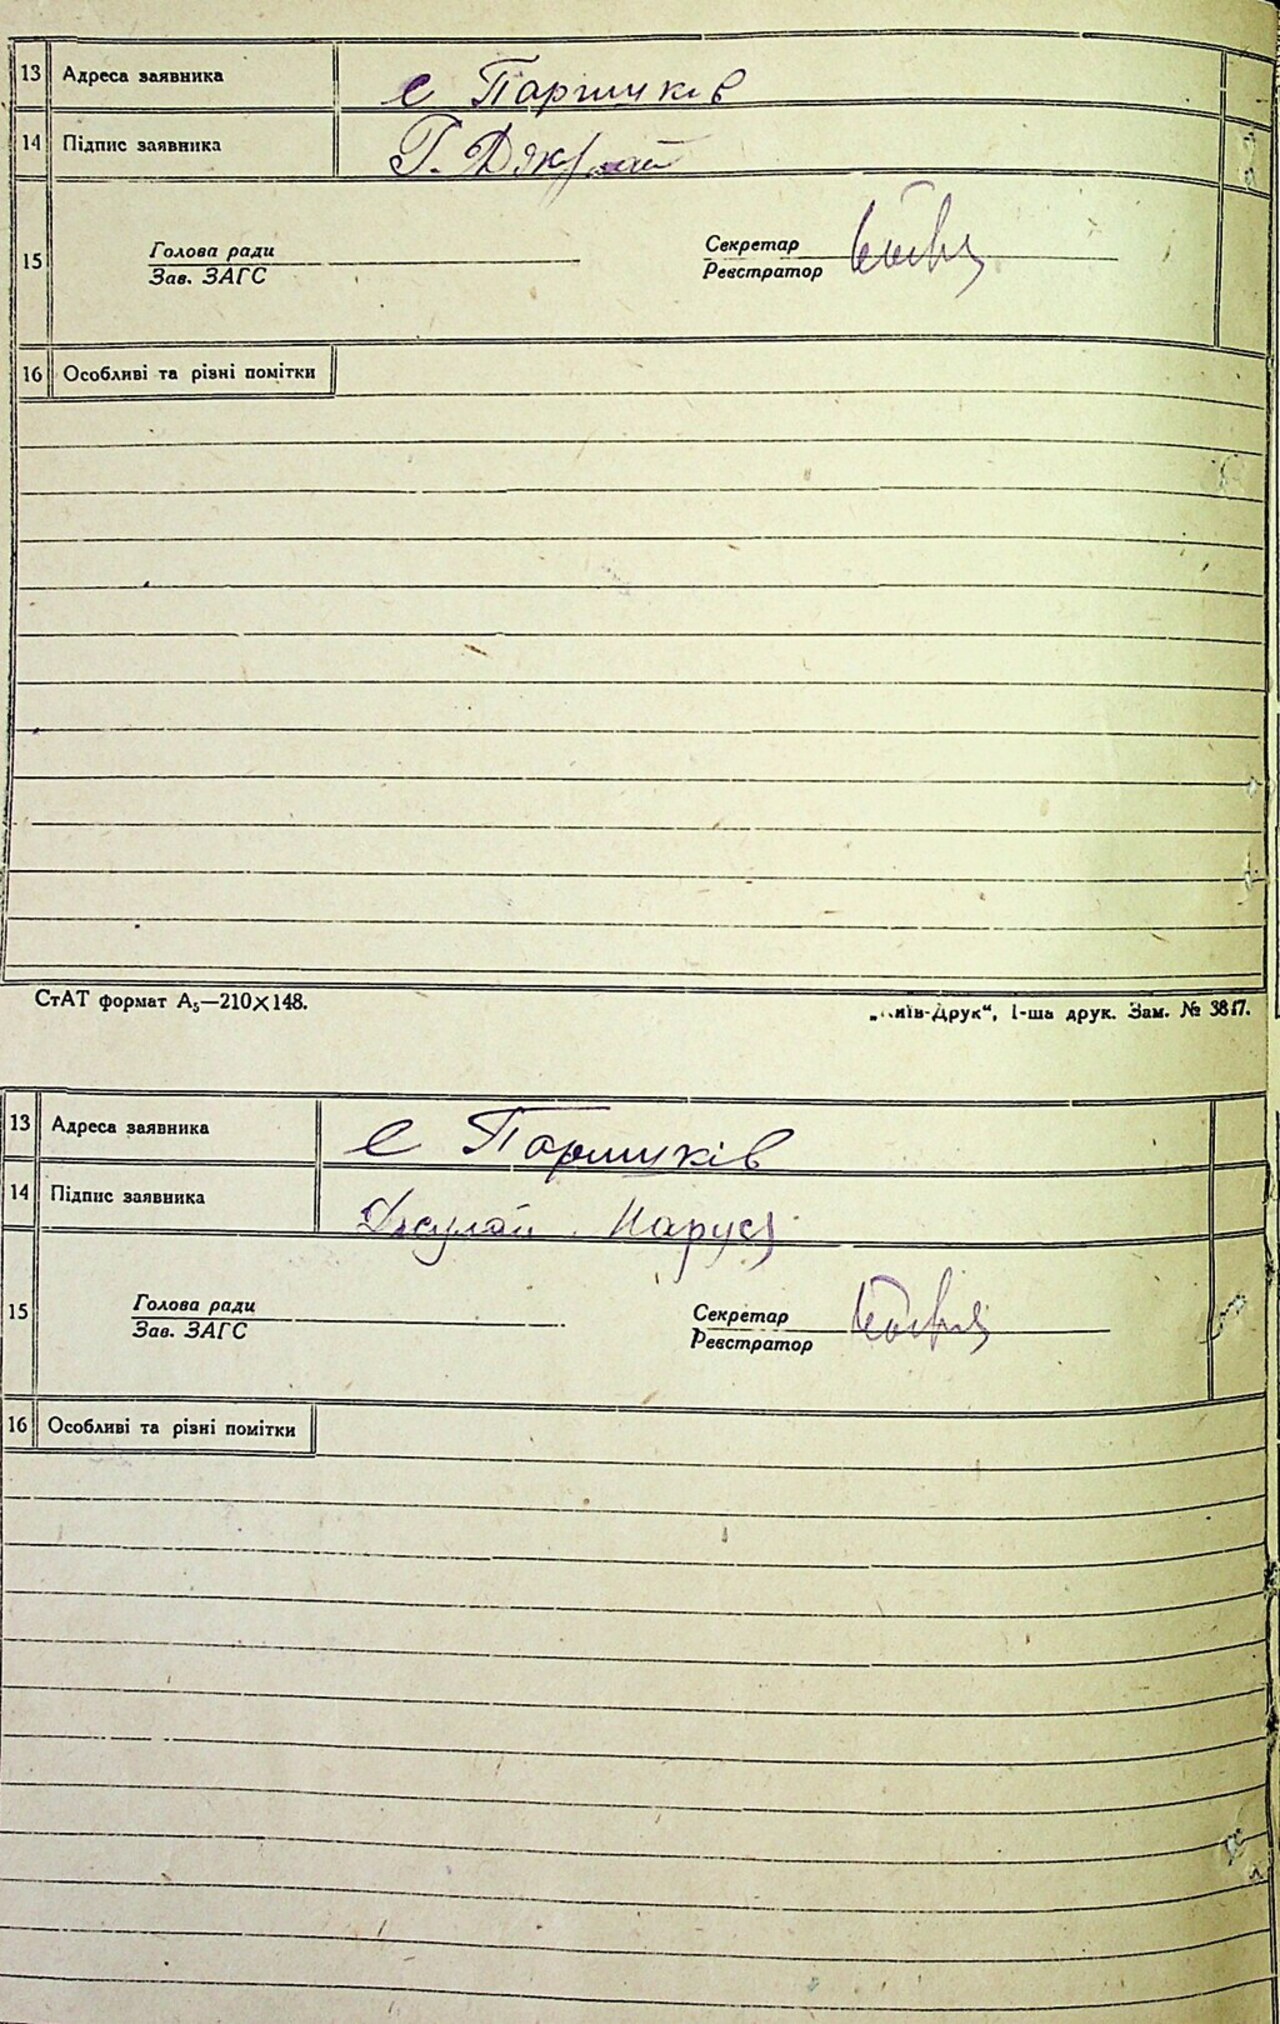 13 Адреса заявника с Паришків
14 Підпис заявника Г.
15 Голова ради Секретар
Зав. ЗАГС Реєстратор
16 Особливі та різні помітки
СтАТ формат А₅—210×148. „Київ-Друк“, 1-ша друк. Зам. № 3817.
13 Адреса заявника с Паришків
14 Підпис заявника
15 Голова ради Секретар
Зав. ЗАГС Реєстратор
16 Особливі та різні помітки